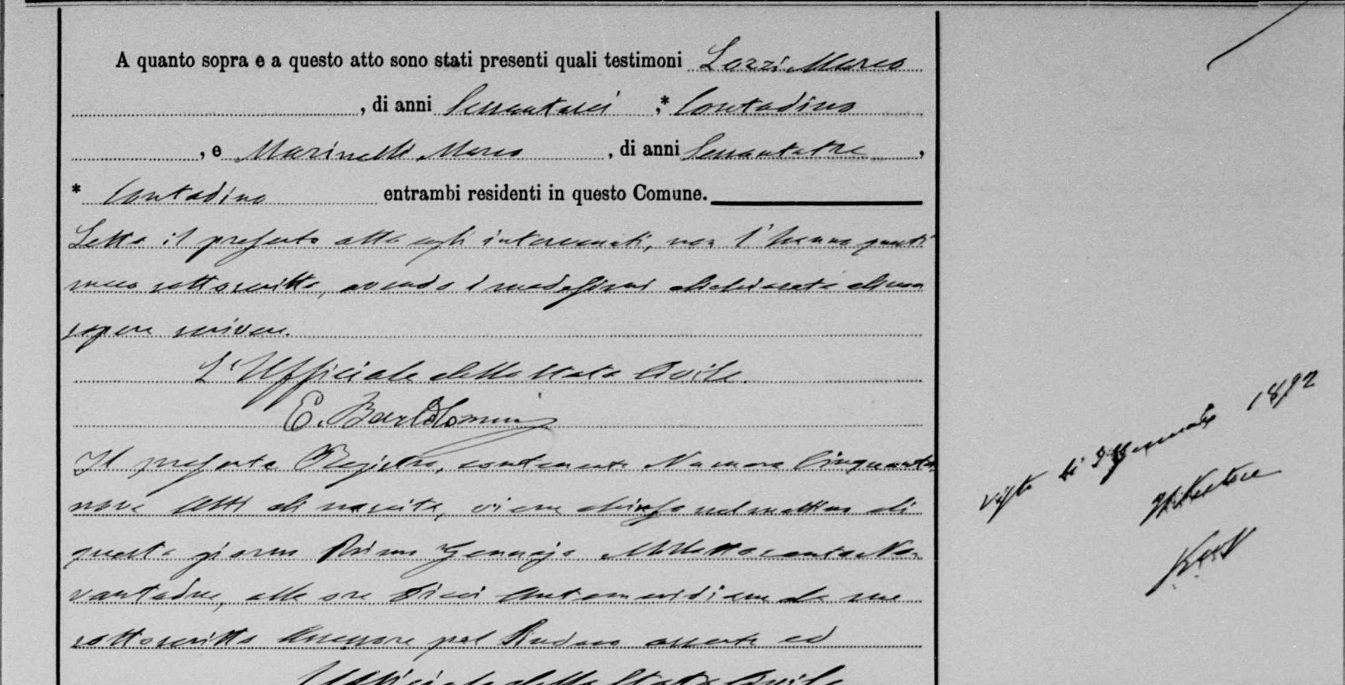 A quanto sopra e a questo atto sono stati presenti quali testimoni Lozzi Marco
, di anni Sessantasei ,* Contadino
, e Marinelli Marco , di anni Sessantatre ,
* Contadino entrambi residenti in questo Comune.
Letto il presente atto agli intervenuti, non l'hanno quati
meco sottoscritto, avendo i medesimi dichiarato di non
sapere scrivere.
L'Ufficiale dello Stato Civile.
E. Bartolomei
Il presente Registro, contenente Numero Cinquanta
nove Atti di nascita, viene chiuso nel mattino di
questo giorno Primo Gennajo Milleottocentono
vantadue, alle ore Dieci Antemeridiane da me
sottoscritto Assessore pel Sindaco assente ed
Ufficiale dello Stato Civile
Visto li Gennaio 1892
Il Pretore